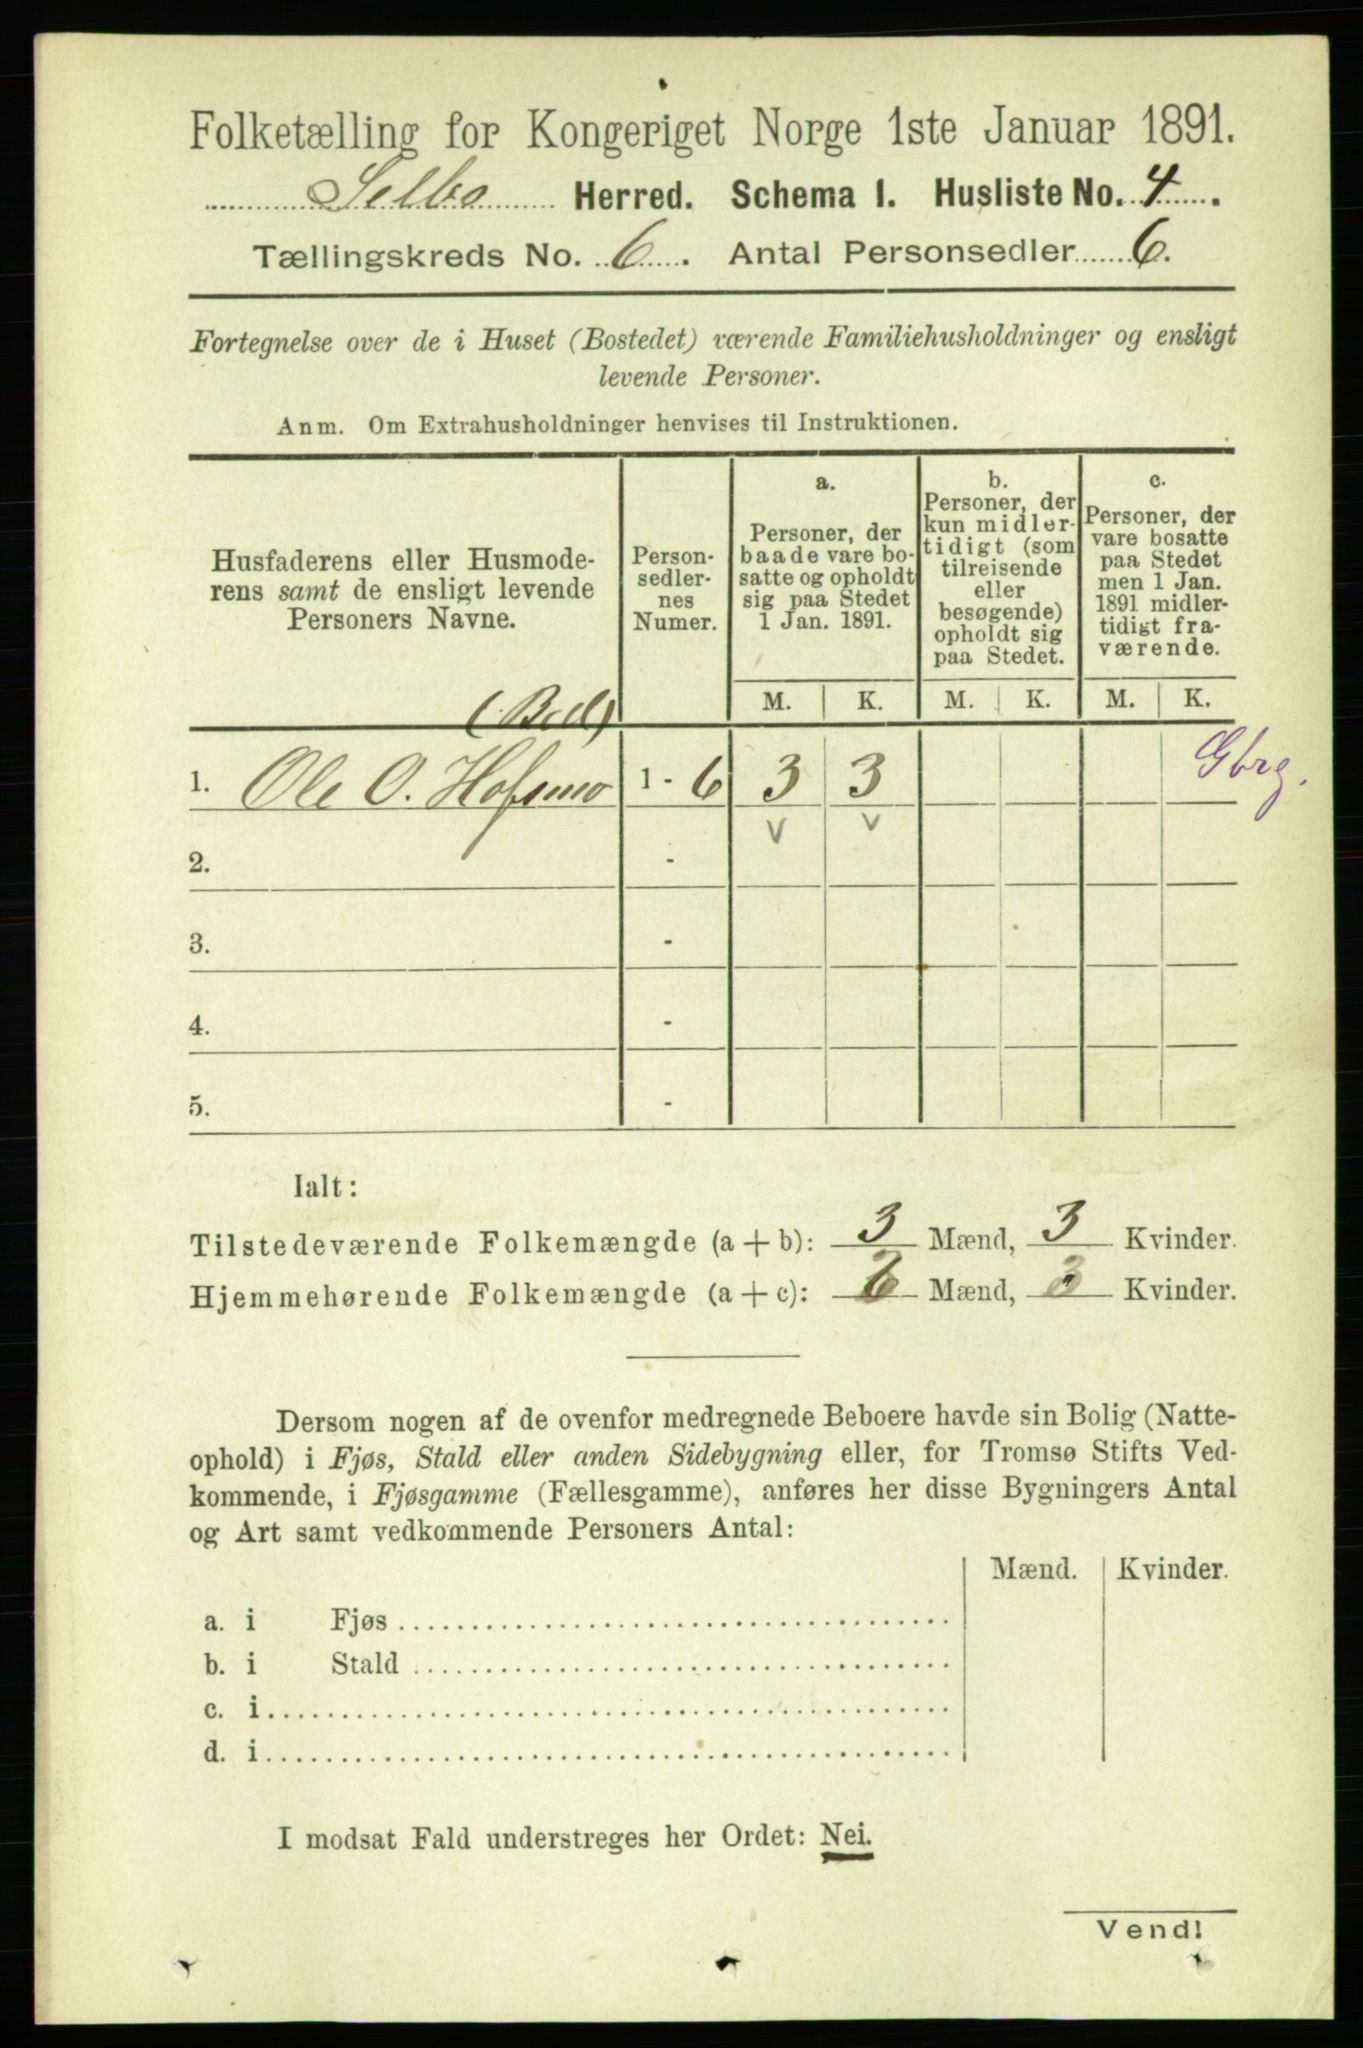 Folketælling for Kongeriget Norge 1ste Januar 1891.
Selbo Herred. Schema I. Husliste No. 4.
Tællingskreds No. 6. Antal Personsedler 6.
Fortegnelse over de i Huset (Bostedet) værende Familiehusholdninger og ensligt
levende Personer.
Anm. Om Extrahusholdninger henvises til Instruktionen.
Husfaderens eller Husmode-
rens samt de ensligt levende
Personers Navne.
Person-
sedler-
nes
Numer.
a.
Personer, der
baade vare bo-
satte og opholdt
sig paa Stedet
1 Jan. 1891.
b.
Personer, der
kun midler-
tidigt (som
tilreisende
eller
besøgende)
opholdt sig
paa Stedet.
c.
Personer, der
vare bosatte
paa Stedet
men 1 Jan.
1891 midler-
tidigt fra-
værende.
M. K. M. K. M. K.
1. Ole O. Hofsmo 1 - 6 3 3 Gbrg.
v v
2. -
3. -
4. -
5. -
Ialt:
Tilstedeværende Folkemængde (a + b): 3 Mænd, 3 Kvinder.
Hjemmehørende Folkemængde (a + c): Mænd, 3 Kvinder.
Dersom nogen af de ovenfor medregnede Beboere havde sin Bolig (Natte-
ophold) i Fjøs, Stald eller anden Sidebygning eller, for Tromsø Stifts Ved-
kommende, i Fjøsgamme (Fællesgamme), anføres her disse Bygningers Antal
og Art samt vedkommende Personers Antal:
Mænd. Kvinder.
a. i Fjøs
b. i Stald
c. i
d. i
I modsat Fald understreges her Ordet: Nei.
Vend!